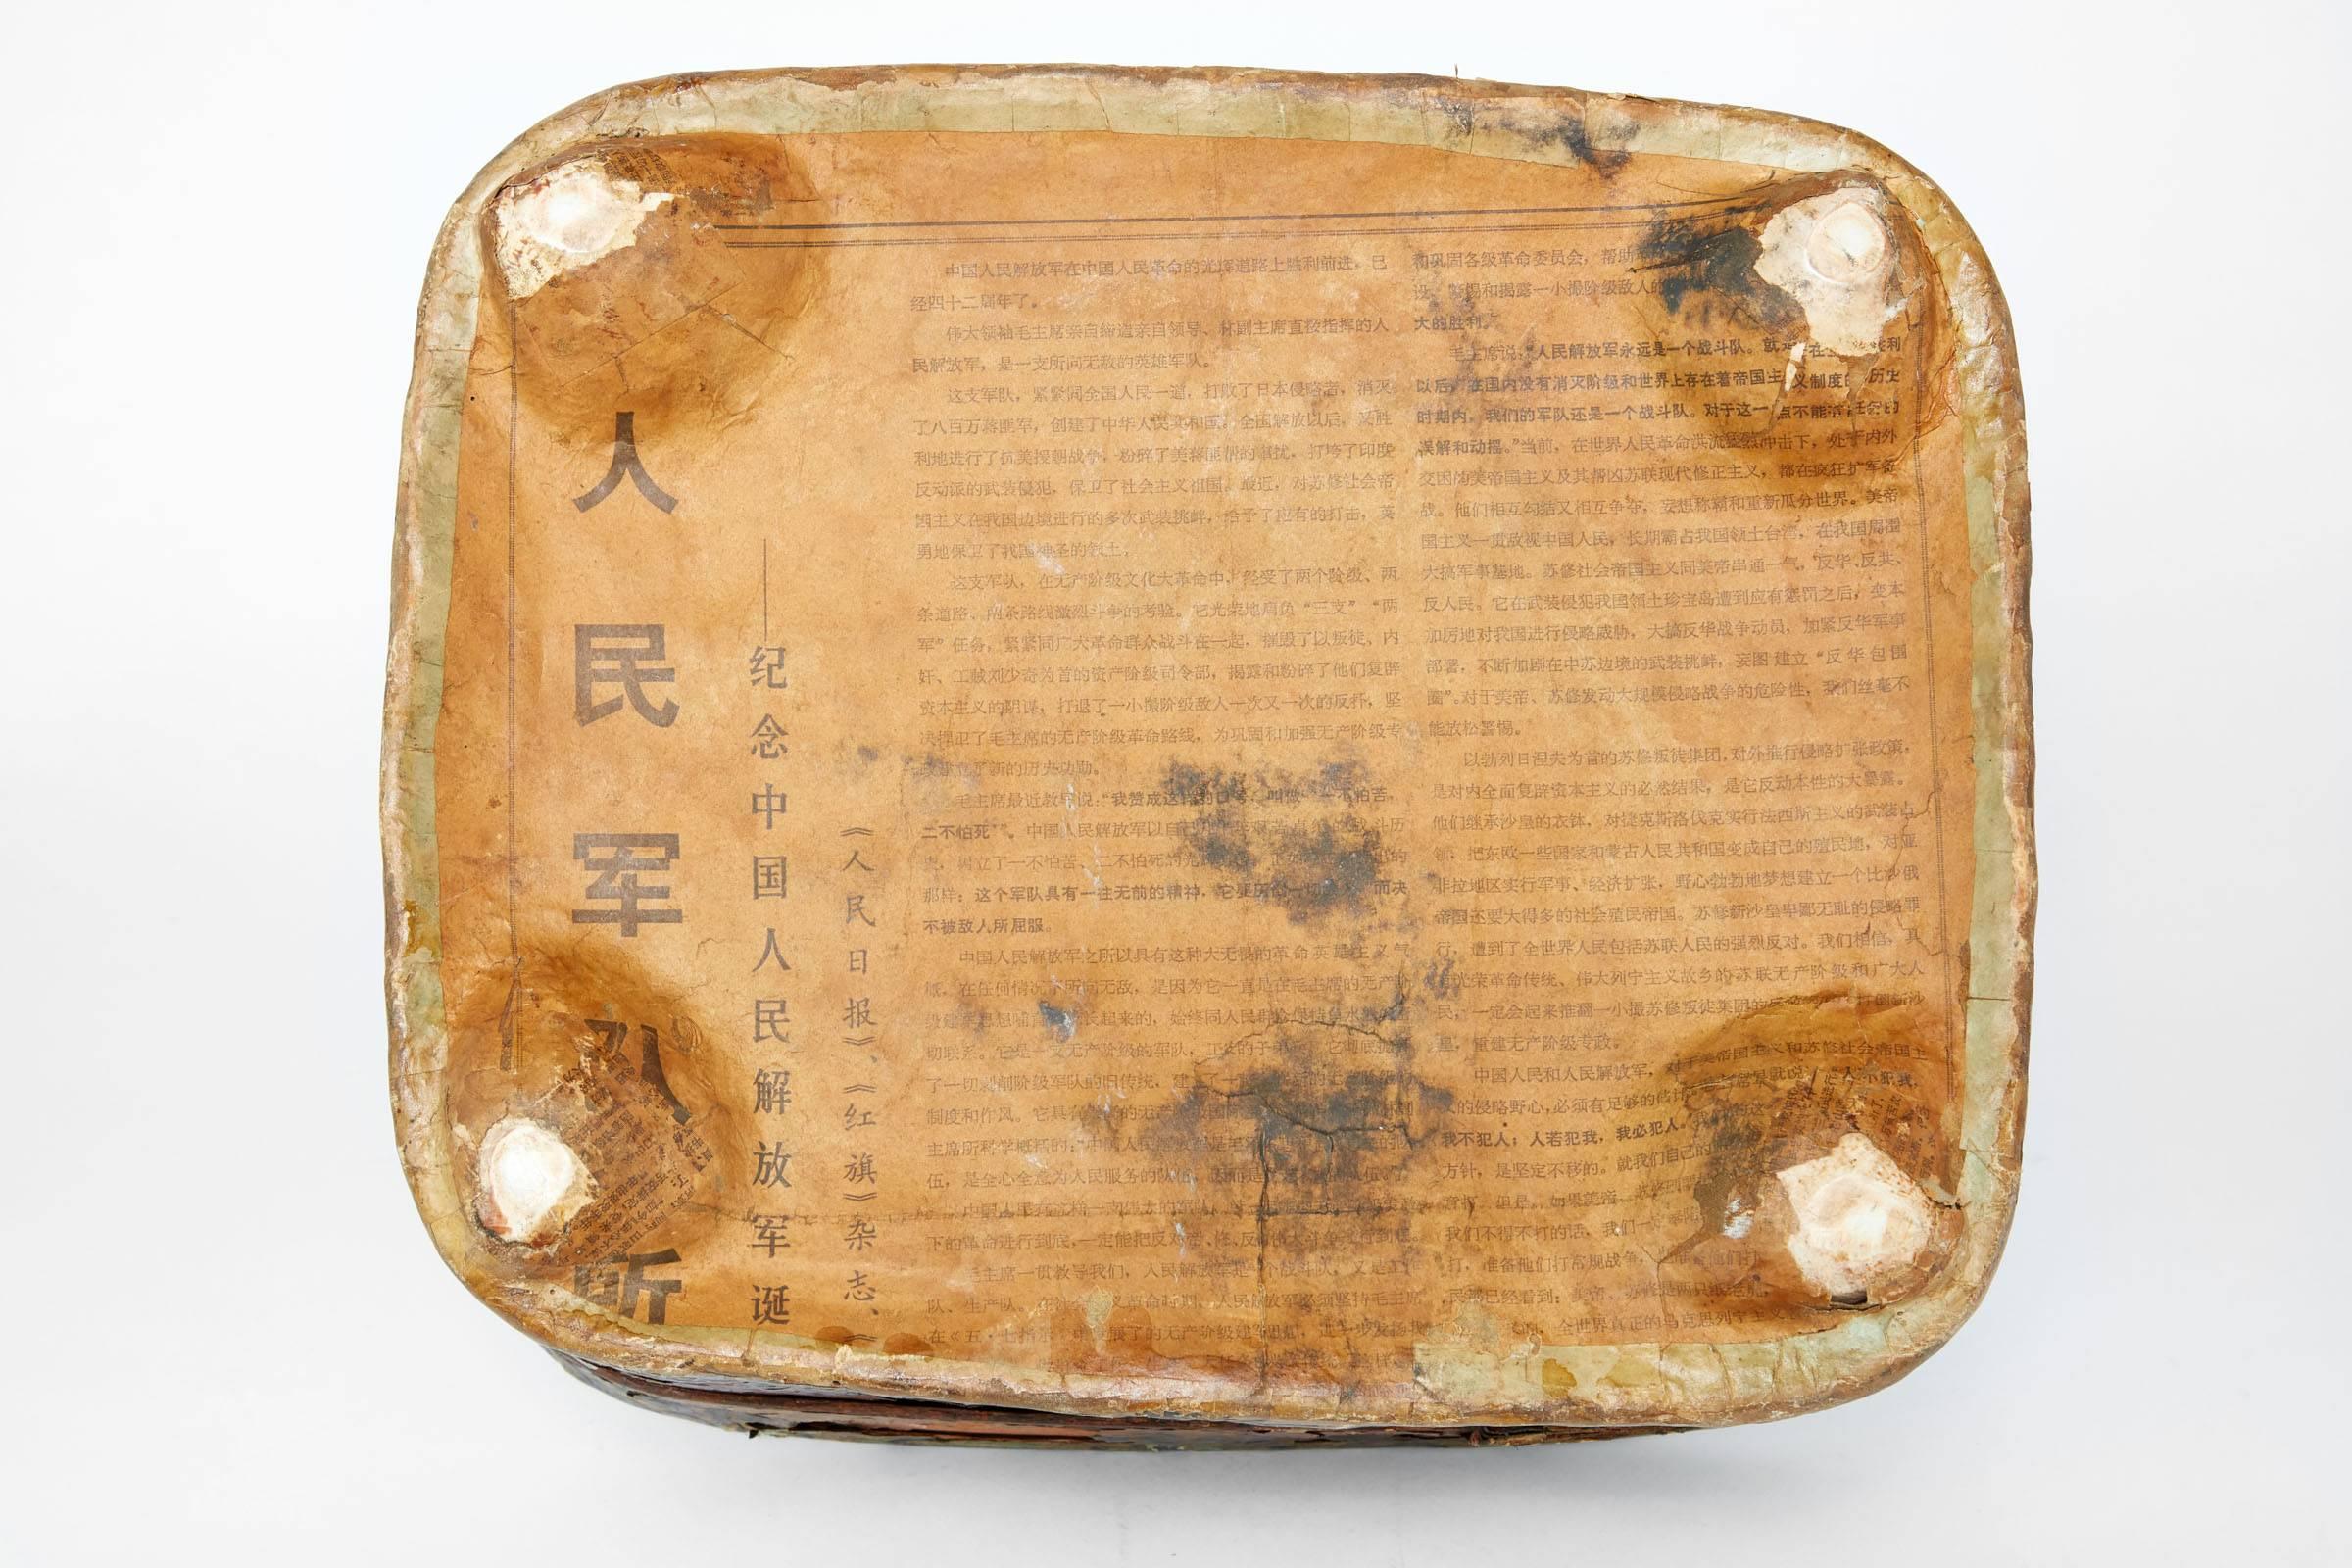 人民军队所
——纪念中国人民解放军诞
《人民日报》、《红旗》杂志、《
中国人民解放军在中国人民革命的光辉道路上胜利前进，已
经四十二周年了。
伟大领袖毛主席亲自缔造亲自领导、林副主席直接指挥的人
民解放军，是一支所向无敌的英雄军队。
这支军队，紧紧同全国人民一道，打败了日本侵略者，消灭
了八百万蒋匪军，创建了中华人民共和国。全国解放以后，又胜
利地进行了抗美援朝战争，粉碎了美蒋匪帮的窜扰，打垮了印度
反动派的武装侵犯，保卫了社会主义祖国。最近，对苏修社会帝
国主义在我国边境进行的多次武装挑衅，给予了应有的打击，英
勇地保卫了我国神圣的领土。
这支军队，在无产阶级文化大革命中，经受了两个阶级、两
条道路、两条路线激烈斗争的考验。它光荣地肩负“三支”“两
军”任务，紧紧同广大革命群众战斗在一起，摧毁了以叛徒、内
奸、工贼刘少奇为首的资产阶级司令部，揭露和粉碎了他们复辟
资本主义的阴谋，打退了一小撮阶级敌人一次又一次的反扑，坚
决捍卫了毛主席的无产阶级革命路线，为巩固和加强无产阶级专
政建立了新的历史功勋。
毛主席最近教导说：“我赞成这样的口号，叫做‘一不怕苦，
二不怕死’”。中国人民解放军以自
史，树立了一不怕苦、二不怕死的光
那样：这个军队具有一往无前的精神，它要压倒一切敌人，而决
不被敌人所屈服。
中国人民解放军之所以具有这种大无畏的革命英雄主义气
概，在任何情况下所向无敌，是因为它一直是在毛主席的无产阶
级建军思想哺育下成长起来的，始终同人民群众保持鱼水
切联系。它是一支无产阶级的军队，工农的子弟兵。它彻底抛弃
了一切剥削阶级军队的旧传统，建立了一
制度和作风。它具有的无产阶级
主席所科学概括的：“中国人民解放军是
伍，是全心全意为人民服务的队伍，
中国人民有这样一支伟大的军队，
下的革命进行到底，一定能把反对帝、修、反的伟大斗争进行到底。
毛主席一贯教导我们，人民解放军是一个战斗队，又是工作
队、生产队。在社会主义革命时期，人民解放军必须坚持毛主席
在《五·七指示》中发展了的无产阶级建军思想，进一步发扬我
和巩固各级革命委员会，帮助
设，警惕和揭露一小撮阶级敌人的
大的胜利。
毛主席说：“人民解放军永远是一个战斗队。就是在全国胜利
以后，在国内没有消灭阶级和世界上存在着帝国主义制度的历史
时期内，我们的军队还是一个战斗队。对于这一点不能有任何的
误解和动摇。”当前，在世界人民革命洪流猛烈冲击下，处于内外
交困的美帝国主义及其帮凶苏联现代修正主义，都在疯狂扩军备
战。他们相互勾结又相互争夺，妄想称霸和重新瓜分世界。美帝
国主义一贯敌视中国人民，长期霸占我国领土台湾，在我国周围
大搞军事基地。苏修社会帝国主义同美帝串通一气，反华、反共、
反人民。它在武装侵犯我国领土珍宝岛遭到应有惩罚之后，变本
加厉地对我国进行侵略威胁，大搞反华战争动员，加紧反华军事
部署，不断加剧在中苏边境的武装挑衅，妄图建立“反华包围
圈”。对于美帝、苏修发动大规模侵略战争的危险性，我们丝毫不
能放松警惕。
以勃列日涅夫为首的苏修叛徒集团，对外推行侵略扩张政策，
是对内全面复辟资本主义的必然结果，是它反动本性的大暴露。
他们继承沙皇的衣钵，对捷克斯洛伐克实行法西斯主义的武装占
领，把东欧一些国家和蒙古人民共和国变成自己的殖民地，对亚
非拉地区实行军事、经济扩张，野心勃勃地梦想建立一个比沙俄
帝国还要大得多的社会殖民帝国。苏修新沙皇卑鄙无耻的侵略罪
行，遭到了全世界人民包括苏联人民的强烈反对。我们相信，具
有光荣革命传统、伟大列宁主义故乡的苏联无产阶级和广大人
民，一定会起来推翻一小撮苏修叛徒集团的反动统治，打倒新沙
皇，重建无产阶级专政。
中国人民和人民解放军，对于美帝国主义和苏修社会帝国主
义的侵略野心，必须有足够的估计。毛主席早就说：“人不犯我，
我不犯人；人若犯我，我必犯人。”我们的这
方针，是坚定不移的。就我们自己的
我们不得不打的话，我们一
打，准备他们打常规战争，
民早已经看到：美帝、苏修是两只纸老虎，
全世界真正的马克思列宁主义